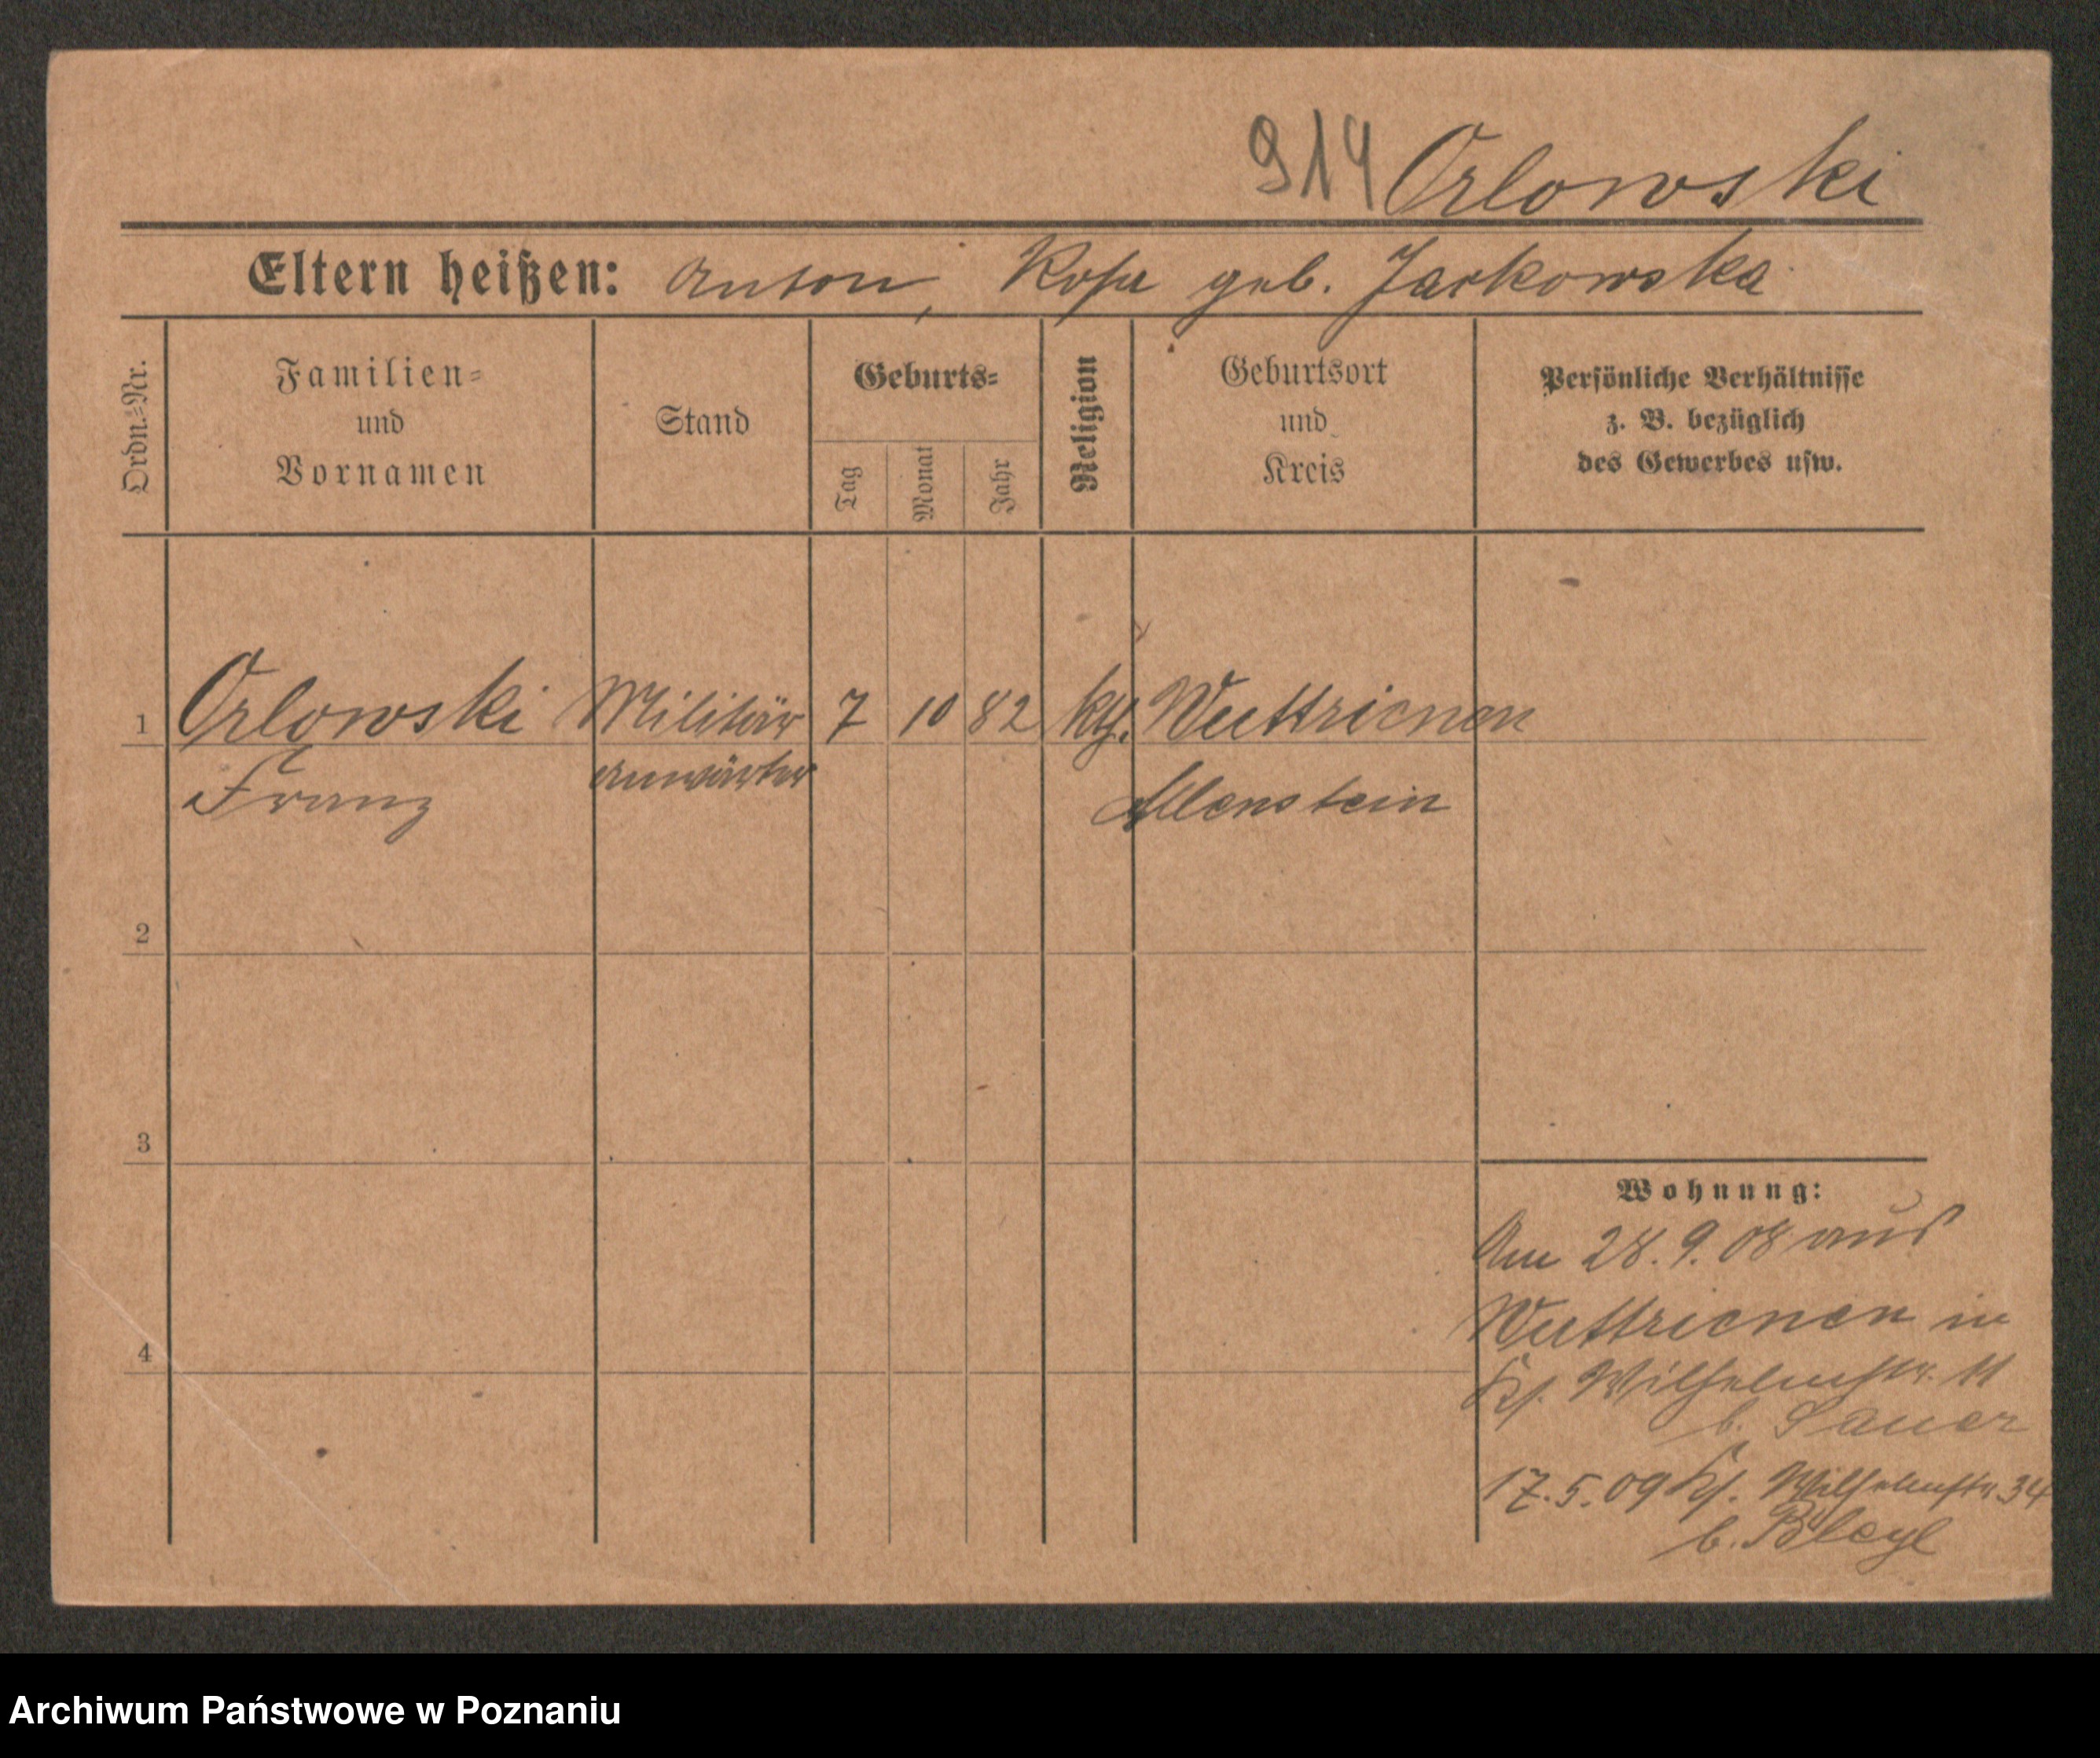 914 Orlowski
Eltern heißen: Anton, Rosa geb. Jarkowska
Ordn.=Nr.
Familien=
und
Vornamen
Stand
Geburts=
Tag
Monat
Jahr
Religion
Geburtsort
und
Kreis
Persönliche Verhältnisse
z. B. bezüglich
des Gewerbes usw.
1 Orlowski Militär 7 10 82 kth. Wuttrienen
Franz anwärter Allenstein
2
3
4
Wohnung:
Am 28.9.08 aus
Wuttrienen in
Wilhelmstr. 11
b. Sauer
17.5.09 Wilhelmstr. 34
b. Bleyl
Archiwum Państwowe w Poznaniu